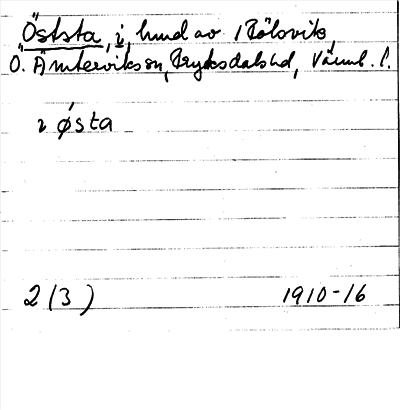 Öststa, i, hmd av / Rölsvik,
Ö. Ämterviks sn, Fryksdals hd, Värml. l.
i østa
2 (3) 1910-16